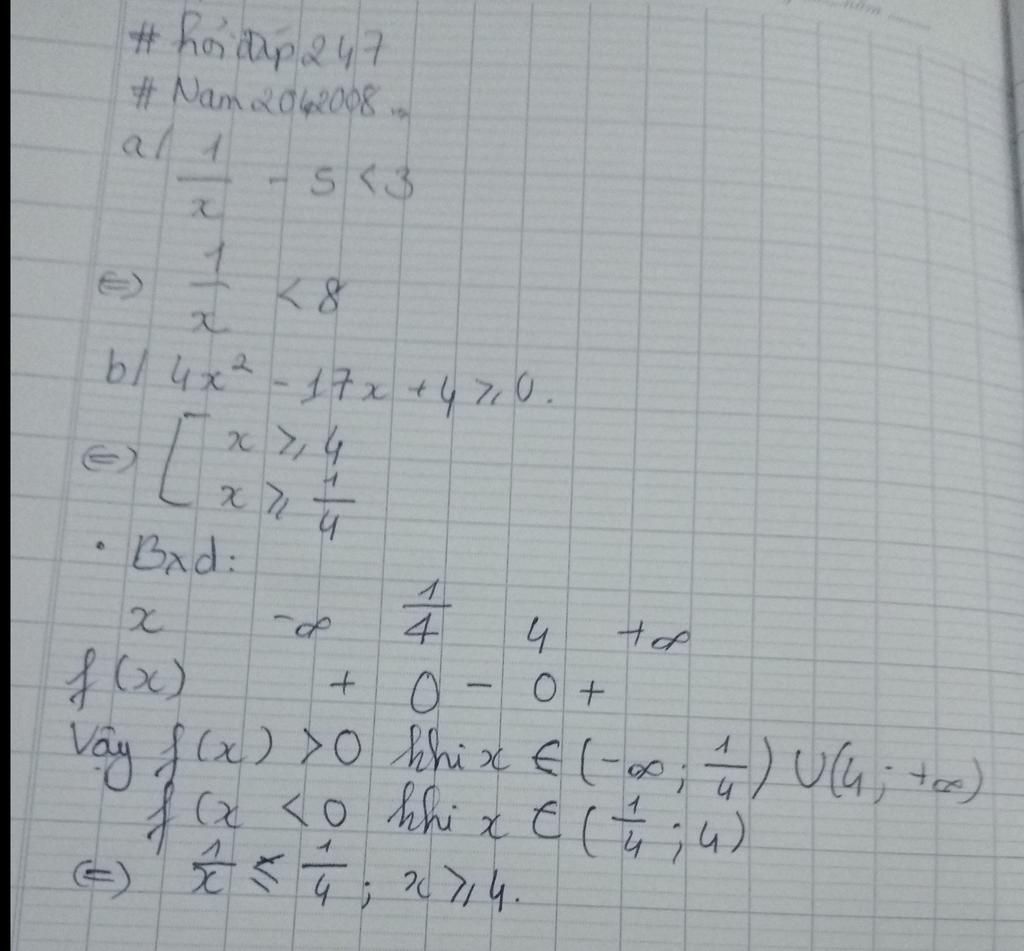 # hỏi đáp 247
# Nam2042008...
a/ 1/x - 5 < 3
⇔ 1/x < 8
b/ 4x² - 17x + 4 ≥ 0.
⇔ [ x ≥ 4
x ≥ 1/4
• Bxd:
x -∞ 1/4 4 +∞
f(x) + 0 - 0 +
Vậy f(x) > 0 khi x ∈ (-∞; 1/4) ∪ (4; +∞)
f(x < 0 khi x ∈ (1/4; 4)
⇔ 1/x ≤ 1/4; x ≥ 4.